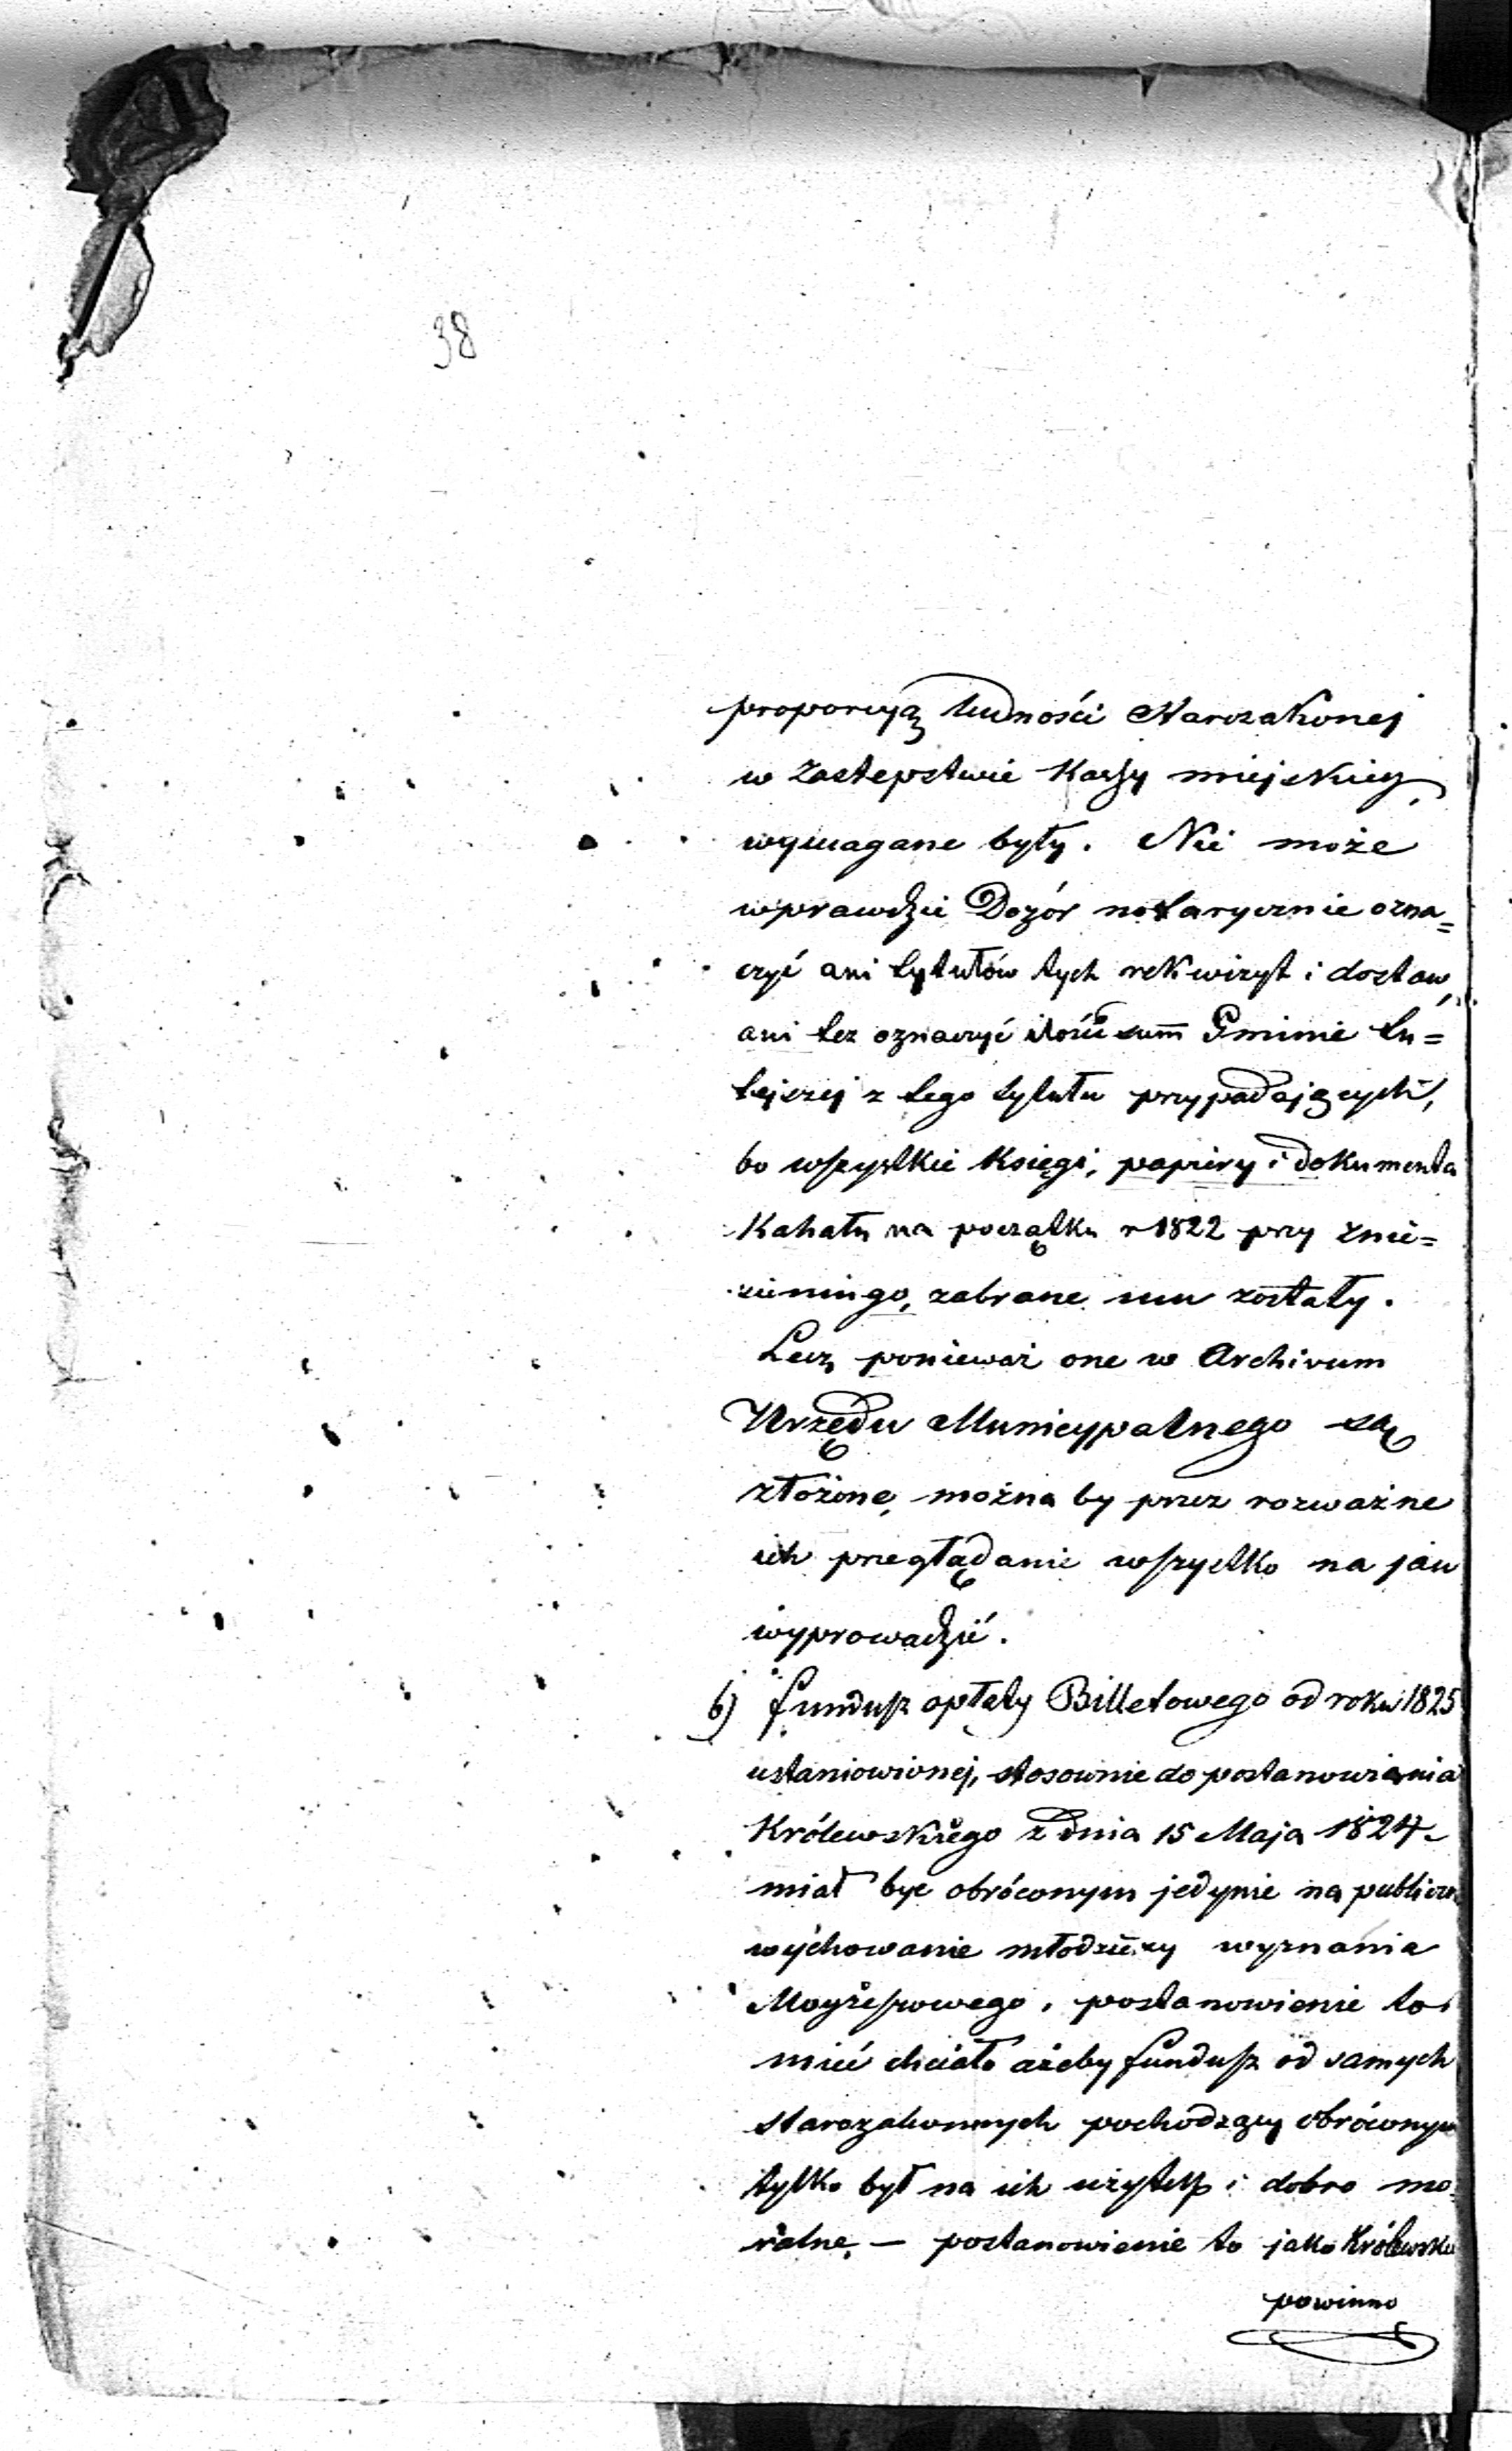 38
proporcyą ludności Starozakonej
w zastepstwie Kassy miejskiey,
wymagane były. Nie może
wprawdzie Dozór notarycznie ozna=
czyć ani tytułów tych rekwizyt i dostaw,
ani tez oznaczyć ilości summ Gminie tu=
tejszej z tego tytułu przypadających,
bo wszystkie Księgi, papiery i dokumenta
Kahału na początku r 1822 przy znie=
sieniu go, zabrane mu zostały.
Lecz ponieważ one w Archivum
Urzędu Municypalnego są
złożone, można by przez rozważne
ich przeglądanie wszystko na jaw
wyprowadzić.
b) fundusz opłaty Billetowego od roku 1825
ustaniowionej, stosownie do postanowienia
Królewskiego z dnia 15 Maja 1824
miał byc obróconym jedynie na publiczne
wychowanie młodzieży wyznania
Mojżeszowego, postanowienie to
mieć chciało ażeby fundusz od samych
starozakonnych pochodzący obróconym
tylko był na ich użytek i dobro mo=
ralne, — postanowienie to jako Królewskie
powinno